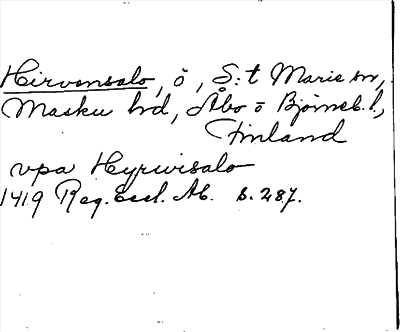 Hirvonsalo, ö, S:t Marie sn,
Masku hd, Åbo o Björneb. l.,
Finland
vpa Hyrwisalo
1419 Reg. Eccl. Ab. s. 287.